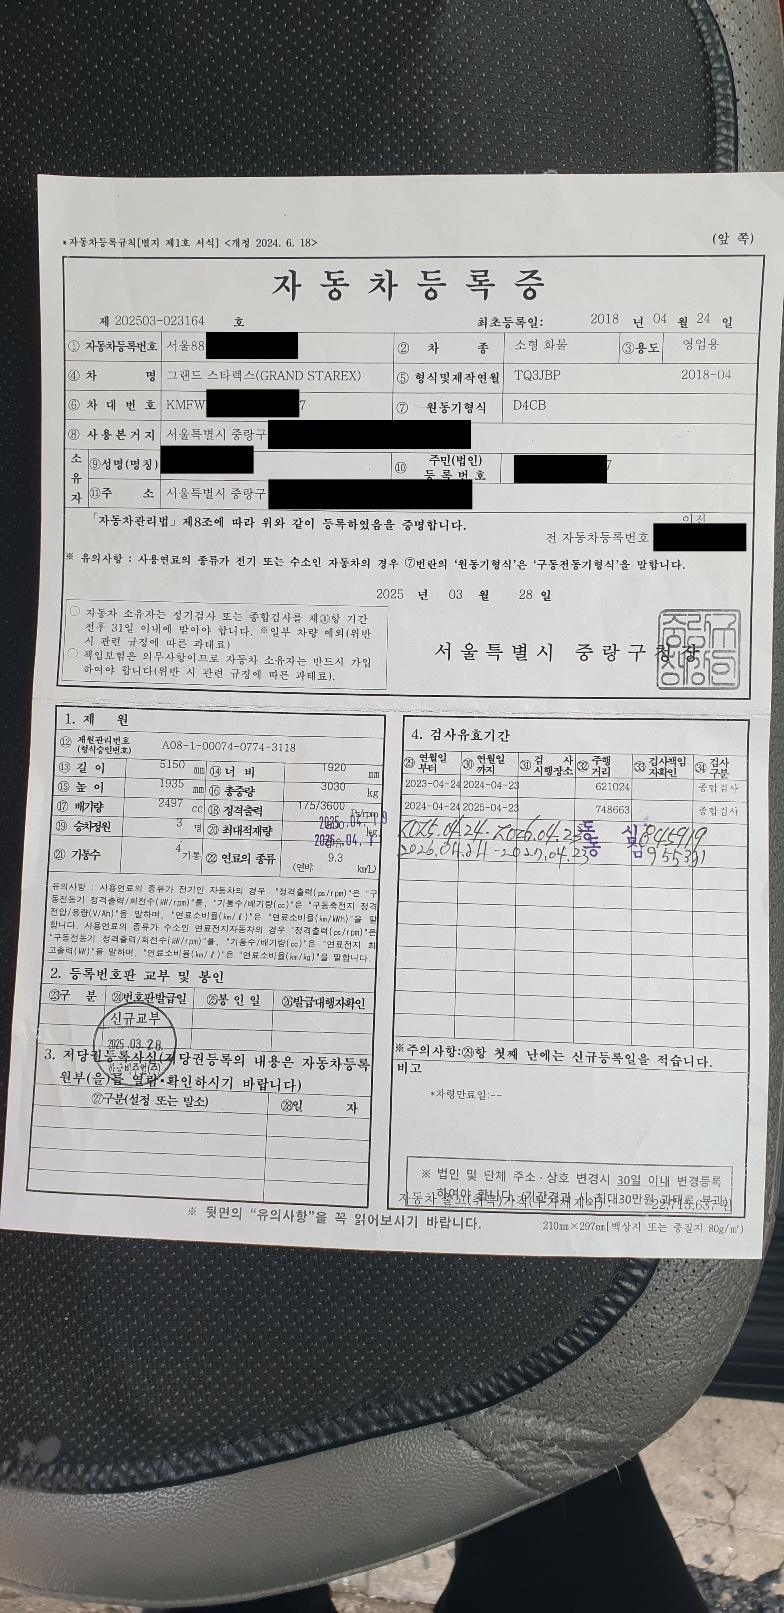 *자동차등록규칙[별지 제1호 서식] <개정 2024. 6. 18>
(앞 쪽)
자동차등록증
제 202503-023164 호
최초등록일: 2018 년 04 월 24 일
① 자동차등록번호 서울88
② 차 종 소형 화물 ③용도 영업용
④ 차 명 그랜드 스타렉스(GRAND STAREX)
⑤ 형식및제작연월 TQ3JBP 2018-04
⑥ 차 대 번 호 KMFW 7
⑦ 원동기형식 D4CB
⑧ 사 용 본 거 지 서울특별시 중랑구
소유자
⑨성명(명칭)
⑩ 주민(법인)등록번호 7
⑪주 소 서울특별시 중랑구
「자동차관리법」제8조에 따라 위와 같이 등록하였음을 증명합니다.
이전
전 자동차등록번호
※ 유의사항 : 사용연료의 종류가 전기 또는 수소인 자동차의 경우 ⑦번란의 '원동기형식'은 '구동전동기형식'을 말합니다.
2025 년 03 월 28 일
○ 자동차 소유자는 정기검사 또는 종합검사를 제③항 기간
전후 31일 이내에 받아야 합니다. ※일부 차량 예외(위반
시 관련 규정에 따른 과태료)
○ 책임보험은 의무사항이므로 자동차 소유자는 반드시 가입
하여야 합니다(위반 시 관련 규정에 따른 과태료).
서울특별시 중랑구청장
1. 제 원
⑫ 제원관리번호 (형식승인번호) A08-1-00074-0774-3118
⑬ 길 이 5150 mm ⑭ 너 비 1920 mm
⑮ 높 이 1935 mm ⑯ 총중량 3030 kg
⑰ 배기량 2497 cc ⑱ 정격출력 175/3600 Ps/rpm
⑲ 승차정원 3 명 ⑳ 최대적재량 kg
㉑ 기통수 4 기통 ㉒ 연료의 종류 (연비: 9.3 km/L)
유의사항 : 사용연료의 종류가 전기인 자동차의 경우 "정격출력(ps/rpm)"은 "구
동전동기 정격출력/회전수(kW/rpm)"를, "기통수/배기량(cc)"은 "구동축전지 정격
전압/용량(V/Ah)"을 말하며, "연료소비율(km/ℓ)"은 "연료소비율(km/kWh)"을 말
합니다. 사용연료의 종류가 수소인 연료전지자동차의 경우 "정격출력(ps/rpm)"은
"구동전동기 정격출력/회전수(kW/rpm)"를, "기통수/배기량(cc)"은 "연료전지 최
고출력(kW)"을 말하며, "연료소비율(km/ℓ)"은 "연료소비율(km/kg)"을 말합니다.
2. 등록번호판 교부 및 봉인
㉓구 분 ㉔번호판발급일 ㉕봉 인 일 ㉖발급대행자확인
신규교부
2025.03.28
3. 저당권등록사실(저당권등록의 내용은 자동차등록
원부(을)를 열람·확인하시기 바랍니다)
㉗구분(설정 또는 말소) ㉘일 자
4. 검사유효기간
㉙ 연월일부터 ㉚ 연월일까지 ㉛ 검 사 시행장소 ㉜ 주행거리 ㉝ 검사책임자확인 ㉞ 검사구분
2023-04-24 2024-04-23 621024 종합검사
2024-04-24 2025-04-23 748663 종합검사
2025.04.24-2026.04.23 동 845919
2026.04.24-2027.04.23 동
※주의사항:㉙항 첫째 난에는 신규등록일을 적습니다.
비고
*차령만료일:--
※ 법인 및 단체 주소·상호 변경시 30일 이내 변경등록
하여야 합니다. (기간경과 시 최대30만원 과태료 부과)
자동차 출고(취득)가격(부가세제외) : 22,713,637 원
※ 뒷면의 "유의사항"을 꼭 읽어보시기 바랍니다.
210㎜×297㎜[백상지 또는 중질지 80g/㎡]